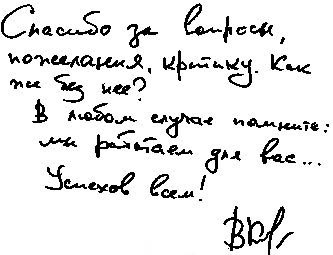 Спасибо за вопросы,
пожелания, критику. Как
же без нее?
В любом случае помните:
мы работаем для вас...
Успехов всем!